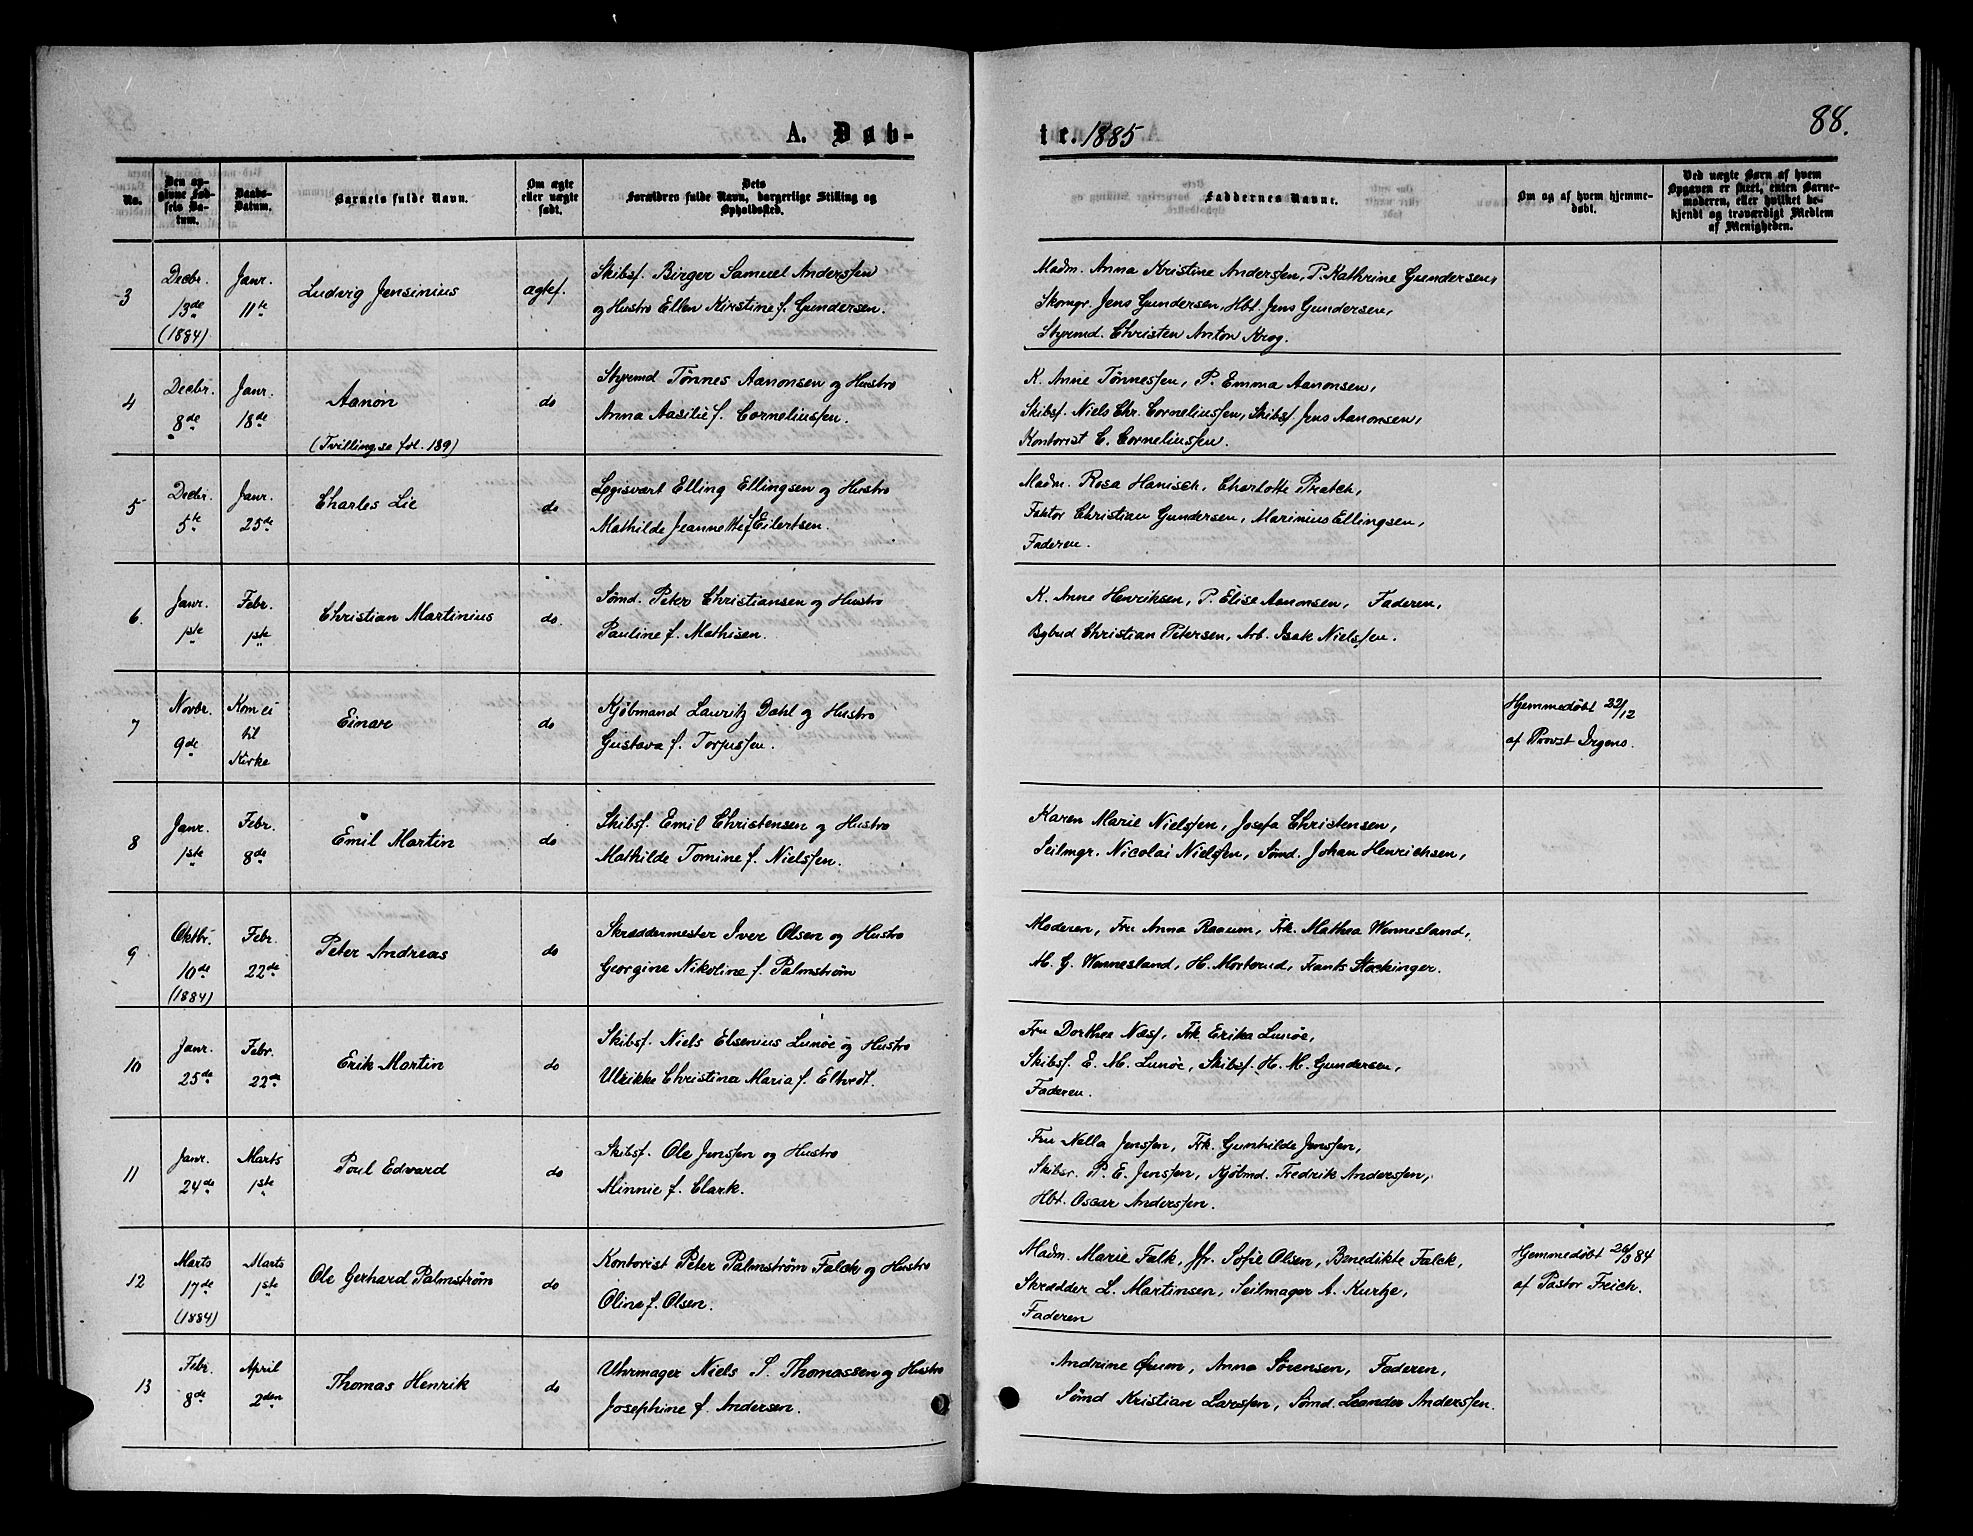 88.
A. Døb-
te. 1885
No.
Den opgivne Fødsels Datum.
Daabs-Datum.
Barnets fulde Navn.
Om ægte eller uægte født.
Dets Forældres fulde Navn, borgerlige Stilling og Opholdssted.
Faddernes Navne.
Om og af hvem hjemmedøbt.
Ved uægte Børn af hvem Opgaven er skeet, enten Barnemoderen, eller hvilket bekjendt og troværdigt Medlem af Menigheden.
3
Decbr. 13de (1884)
Janr. 11te
Ludvig Jensinius
ægtef.
Skibsf. Birger Samuel Anderssen
og Hustro Ellen Kirstine f. Gundersen.
Madm. Anna Kristine Anderssen, P. Kathrine Gundersen,
Skomgr. Jens Gundersen, Hbt. Jens Gundersen,
Styrmd. Christen Anton Krog.
4
Decbr. 8de
Janr. 18de
Aanon
(Tvilling, se fol. 189)
do
Styrmd Tønnes Aanonsen og Hustro
Anna Aasilie f. Corneliussen.
K. Anne Tønnessen, P. Emma Aanonsen,
Skibsf. Niels Chr. Corneliussen, Skibsf Jens Aanonsen,
Kontorist C. Corneliussen.
5
Decbr. 5te
Janr. 25de
Charles Lie
do
Logisvært Elling Ellingsen og Hustro
Mathilde Jeannette f Eilertsen.
Madm. Rosa Hanisch, Charlotte Pratch,
Faktor Christian Gundersen, Marinius Ellingsen,
Faderen.
6.
Janr. 1ste
Febr. 1ste
Christian Martinius
do.
Sømd. Peter Christiansen og Hustro
Pauline f. Mathisen.
K. Anne Henriksen, P. Elise Aanonsen, Faderen,
Bybud Christian Petersen, Arb. Isak Nielssen.
7
Novbr. 9de
Kom ei til Kirke
Einar
do
Kjøbmand Lauritz Dahl og Hustro
Gustava f. Torjussen.
Hjemmedøbt 22/12
af Provst Irgens.
8
Janr. 1ste
Febr. 8de
Emil Martin
do
Skibsf. Emil Christensen og Hustro
Mathilde Tomine f. Nielssen.
Karen Marie Nielssen, Josefa Christensen,
Seilmgr. Nicolai Nielssen, Sømd. Johan Henrichsen,
9
Oktbr. 10de (1884)
Febr. 22de
Peter Andreas
do
Skræddermester Iver Olsen og Hustro
Georgine Nikoline f. Palmstrøm
Moderen, Fru Anna Raaum, Frk. Mathea Wennesland,
M. G. Wennesland, H. Morterud, Frants Stockinger.
10
Janr. 25de
Febr. 22de
Erik Martin
do
Skibsf. Niels Elsenius Lunøe og Hustro
Ulrikke Christina Maria f. Eltvedt.
Fru Dorthea Næss, Frk Erika Lunøe,
Skibsf. E. M. Lunøe, Skibsf. H. M. Gundersen,
Faderen.
11
Janr. 24de
Marts 1ste
Poul Edvard
do
Skibsf. Ole Jenssen og Hustro
Minnie f. Clark.
Fru Nella Jenssen, Frk. Gunhilde Jenssen,
Skibsr. P. E. Jenssen, Kjøbmd. Fredrik Anderssen,
Hbt. Oscar Anderssen.
12
Marts 17de (1884)
Marts 1ste
Ole Gerhard Palmstrøm
do
Kontorist Peter Palmstrøm Falck og Hustro
Oline f. Olsen.
Madm. Marie Falk, Jfr. Sofie Olsen, Benedikte Falck,
Skrædder L. Martinsen, Seilmager A. Kurtze,
Faderen
Hjemmedøbt 26/3 84
af Pastor Freich.
13
Febr. 8de
April 2den
Thomas Henrik
do
Uhrmager Niels S. Thomassen og Hustro
Josephine f. Andersen.
Andrine Ørum, Anna Sørensen, Faderen,
Sømd Kristian Larssen, Sømd. Leander Anderssen.